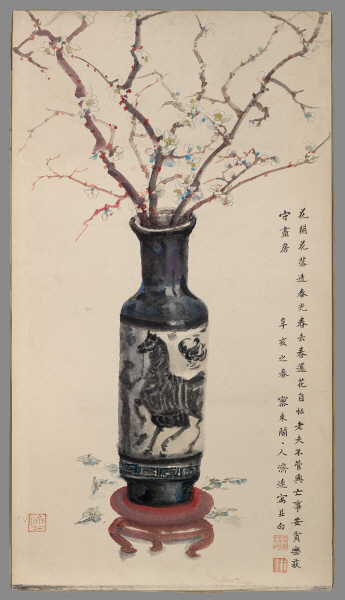 花開花落送春光春去春還花自忙老夫不管興亡事安貧樂
守畫房 辛亥之春 東人濟遠寫并句